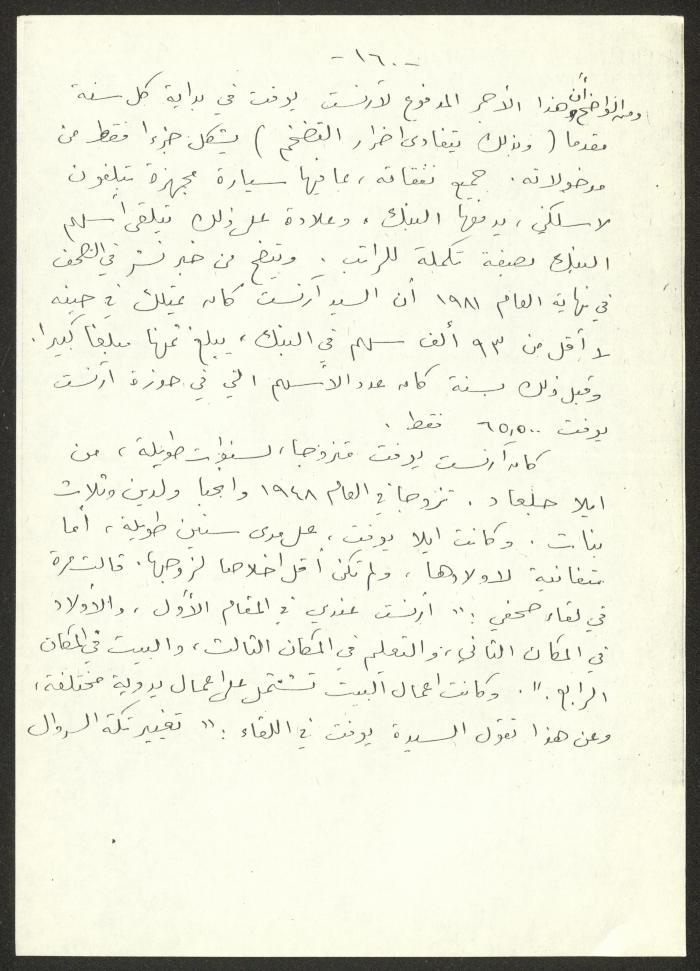 -١٦٠-
ومن الواضح أن هذا الأجر المدفوع لآرنست يوفت في بداية كل سنة
مقدما ( وبذلك يتفادى اضرار التضخم ) يشكل جزءا فقط من
مدخولاته . جميع نفقاته ، بما فيها سيارة مجهزة بتلفون
لاسلكي ، يدفعها البنك ، وعلاوة على ذلك يتلقى أسهم
البنك بصيغة تكملة للراتب . ويتضح من خبر نشر في الصحف
في نهاية العام ١٩٨١ أن السيد آرنست كان يمتلك في حينه
لا أقل من ٩٣ ألف سهم في البنك ، يبلغ ثمنها مبلغا كبيرا .
وقبل ذلك بسنة كان عدد الأسهم التي في حوزة آرنست
يوفت ٦٥,٥٠٠ فقط .
كان آرنست يوفت متزوجا ، لسنوات طويلة ، من
ايلا جلعاد . تزوجا في العام ١٩٤٨ وانجبا ولدين وثلاث
بنات . وكانت ايلا يوفت ، على مدى سنين طويلة ، أما
متفانية لاولادها ، ولم تكن أقل اخلاصا لزوجها . قالت مرة
في لقاء صحفي : " آرنست عندي في المقام الأول ، والأولاد
في المكان الثاني ، والتعليم في المكان الثالث ، والبيت في المكان
الرابع . " . وكانت اعمال البيت تشتمل على اعمال يدوية مختلفة ،
وعن هذا تقول السيدة يوفت في اللقاء : " تغيير تكة السروال